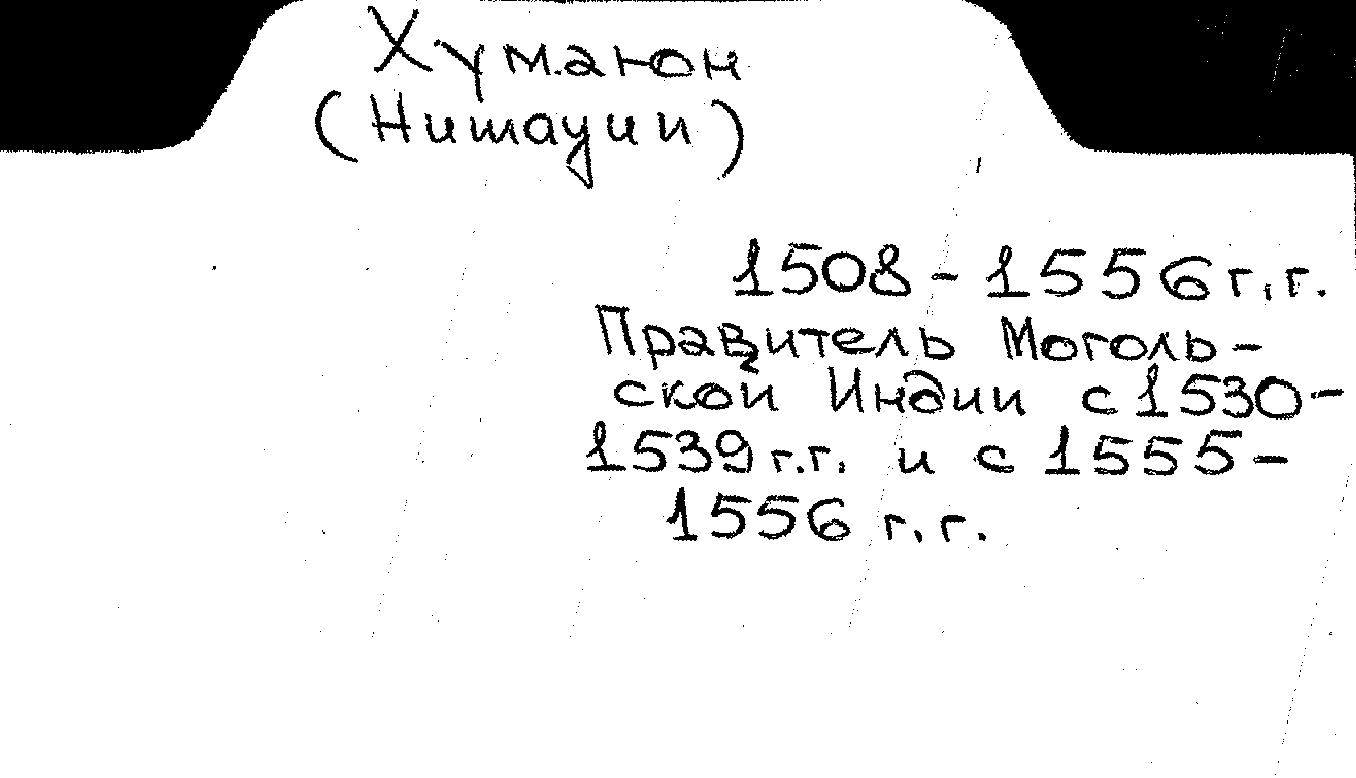 Хумаюн
(Нишауии)
1508 - 1556 г.г.
Правитель Моголь-
ской Индии с 1530-
1539 г.г. и с 1555-
1556 г.г.